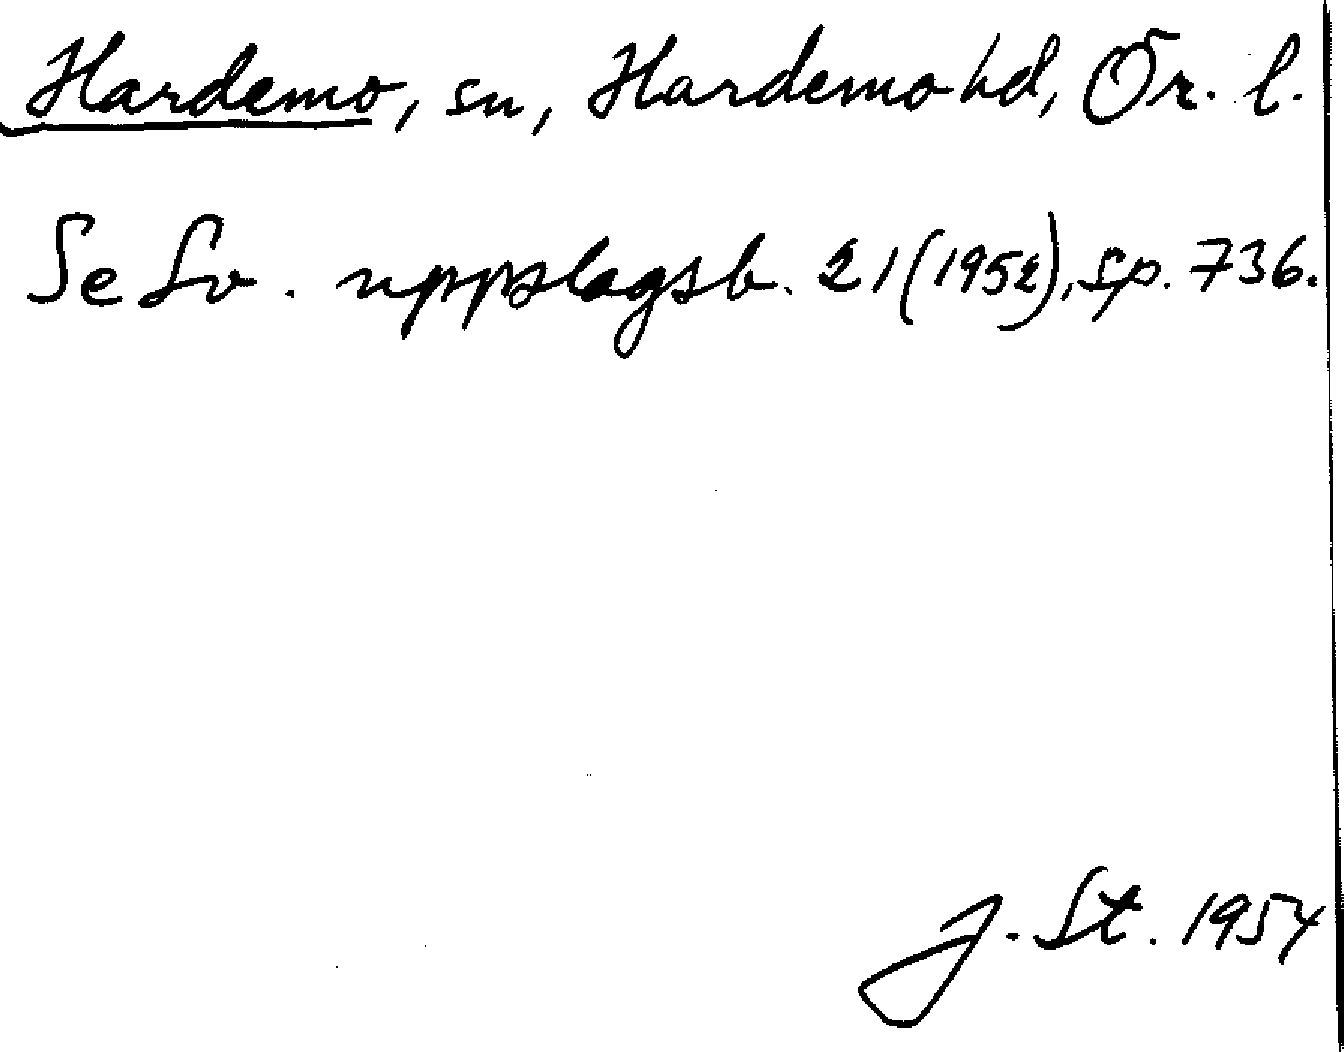 Hardemo, sn, Hardemo hd, Ör. l.
Se Sv. uppslagsb. 21 (1952), sp. 736.
J. St. 1954